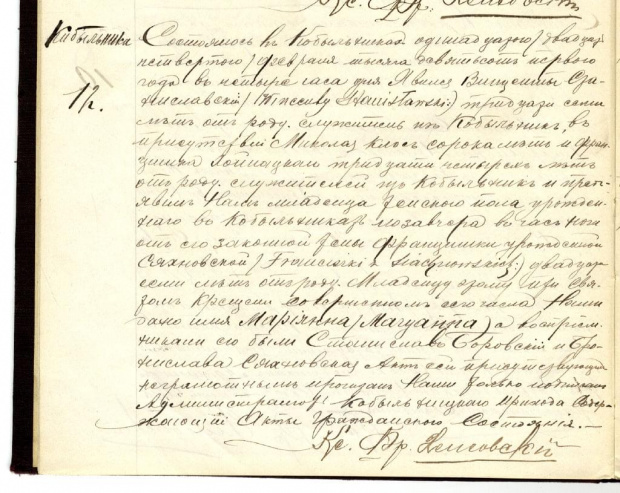 Кс. Фр.
Кобыльника
12.
Состоялось въ Кобыльникахъ одинадцатого/двадцать
четвертого/февраля тысяча девятьсотъ первого
года въ четыре часа дня. Явился Винценты
Станиславскій/ Wincenty Stanisławski:) тридцати семи
лѣтъ отъ роду, служитель въ Кобыльникѣ, въ
присутствіи Николая Клосъ сорока лѣтъ и Фран-
тридцати четырехъ лѣтъ
отъ роду, служителей изъ Кобыльникъ и предъ-
явилъ Намъ младенца женского пола урожден-
наго въ Кобыльникахъ позавчера въ часъ ночи
отъ его законной жены Францишки урожденной
Сяхновской/ Franciszki z двадцати
семи лѣтъ отъ роду. Младенцу этому при Свя-
томъ Крещеніи совершенномъ сего числа Нами
дано имя Маріянна/Maryanna) а воспріем-
никами его были Станиславъ Боровскій и Бро-
нислава Сяхновская. Актъ сей присутствующимъ
неграмотнымъ прочитанъ Нами только подписанъ
Администраторъ Кобыльницкаго прихода Содер-
жающій Акты Гражданского Состоянія. —
Кс. Фр.